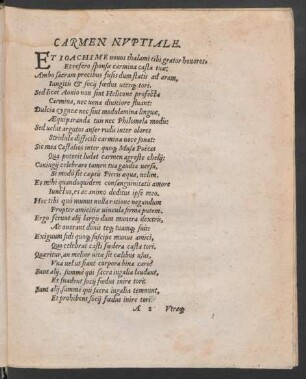 CARMEN NVPTIALE.
ET IOACHIME nouos thalami tibi grator honores,
Et refero sponsæ carmina casta tuæ:
Ambo sacram precibus fusis dum statis ad aram,
Iungitis & socij fœdus utrinq; tori.
Sed licet Aonio non sint Helicone profecta
Carmina, nec uena diuitiore fluant:
Dulcia cygneæ nec sint modulamina linguæ,
Æquiparanda tuis nec Philomela modis:
Sed uelut argutos anser rudis inter olores
Stridula disticoli carmina uoce sonat:
Sic mea Castalios inter quoq; Musa Poetas
Qua poterit ludet carmen agreste chely:
Coniugij celebrare tamen tua gaudia uersu,
Si modo sit cæptis Pieris æqua, uelim.
Et mihi quandoquidem consanguinitatis amore
Iunctus, es ac animo deditus ipse meo,
Hoc tibi qui munus nulla ratione negandum
Propter amicitiæ uincula firma putem.
Ergo ferunt alij largis dum munera dextris,
Ac onerant donis teq; tuamq; suis:
Exiguum fidi quoq; suscipe munus amici,
Quo celebrat casti fœdera casta tori.
Quæritur, an melior uitæ sit cælibis usus,
Vna uel ut fiant corpora bina caro?
Sunt alij, summè qui sacra iugalia laudant,
Et suadent socij fœdus inire tori:
Sunt alij, summè qui sacra iugalia temnunt,
Et prohibent socij fœdus inire tori.
A 2 Vtraq;